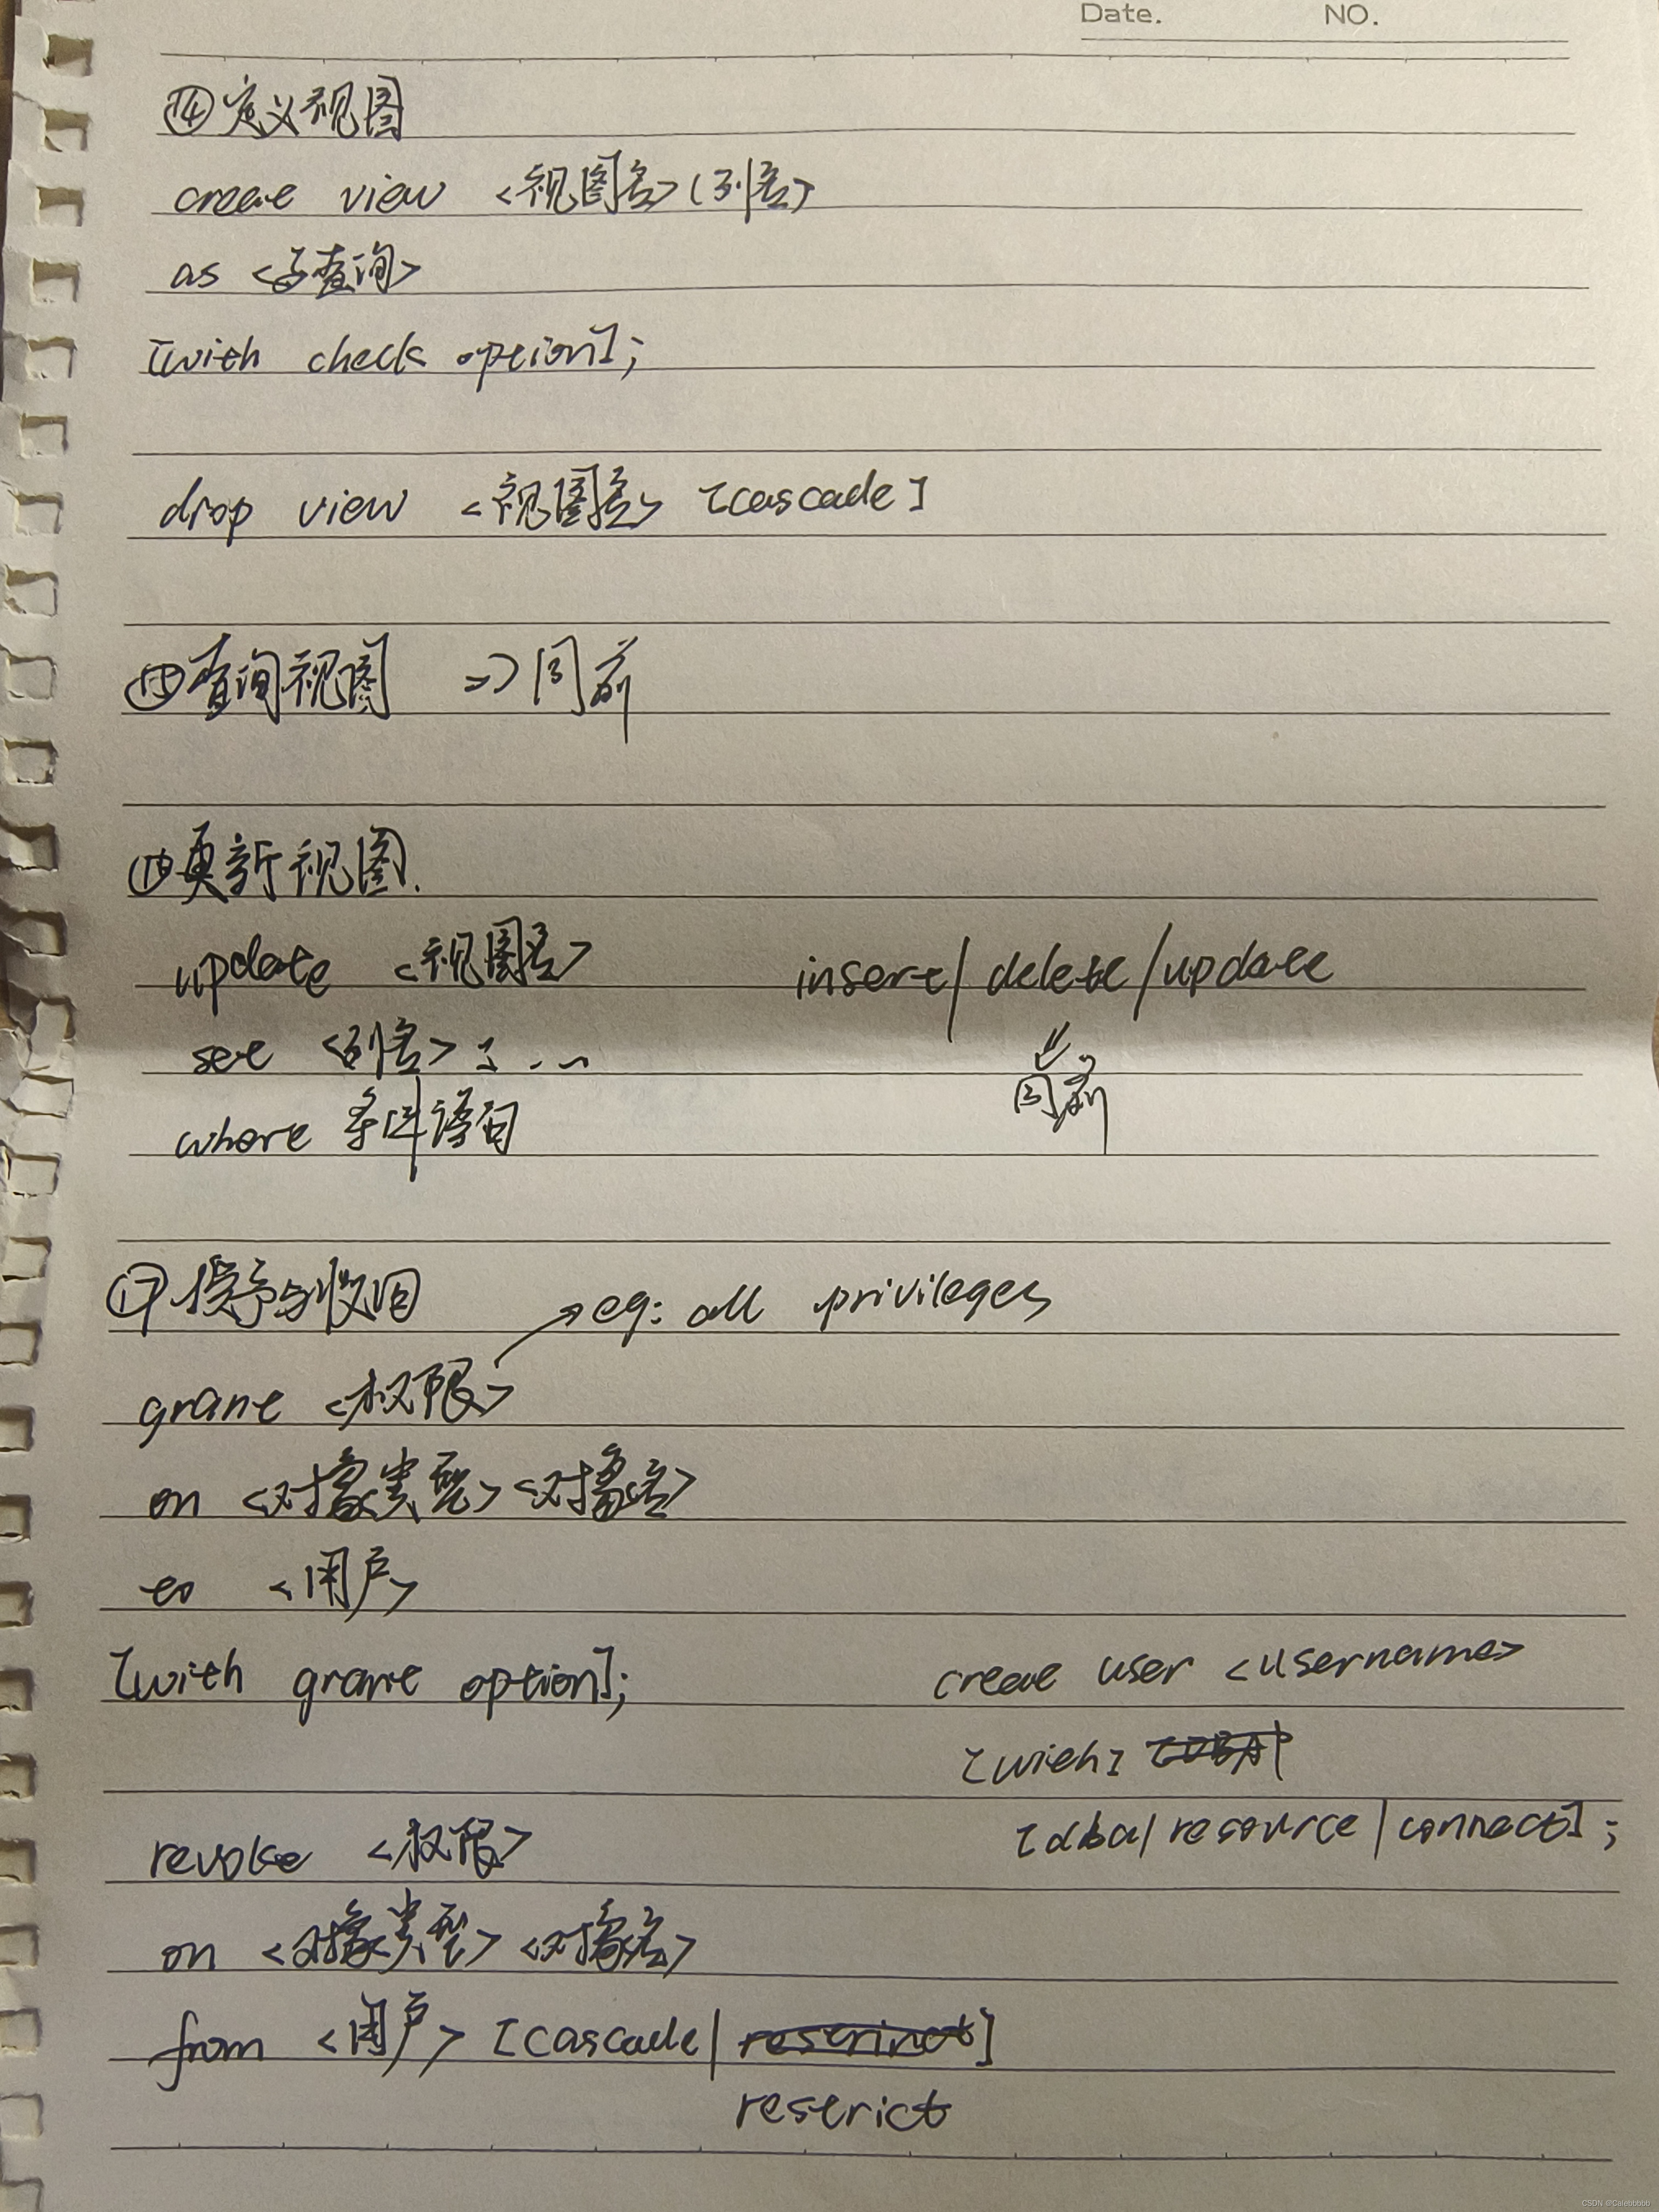 Date. NO.
⑭定义视图
create view <视图名>(列名)
as <子查询>
[with check option];
drop view <视图名> [cascade]
⑮查询视图 => 同前
⑯更新视图.
update <视图名> insert/delete/update
set <列名> = ...
同前
where 条件语句
⑰授予与收回 → eg: all privileges
grant <权限>
on <对象类型> <对象名>
to <用户>
[with grant option]; create user <username>
[with]
[dba/resource/connect];
revoke <权限>
on <对象类型> <对象名>
from <用户> [cascade| ]
restrict
CSDN @Calebbbbb